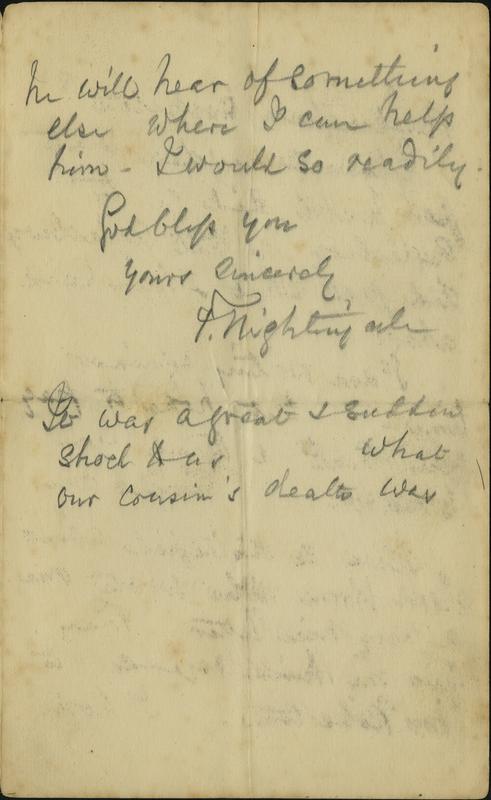 he will hear of something
else where I can help
him - I would so readily.
God bless you
yours sincerely
F. Nightingale
It was a great & sudden
shock to us what
our cousin's death was